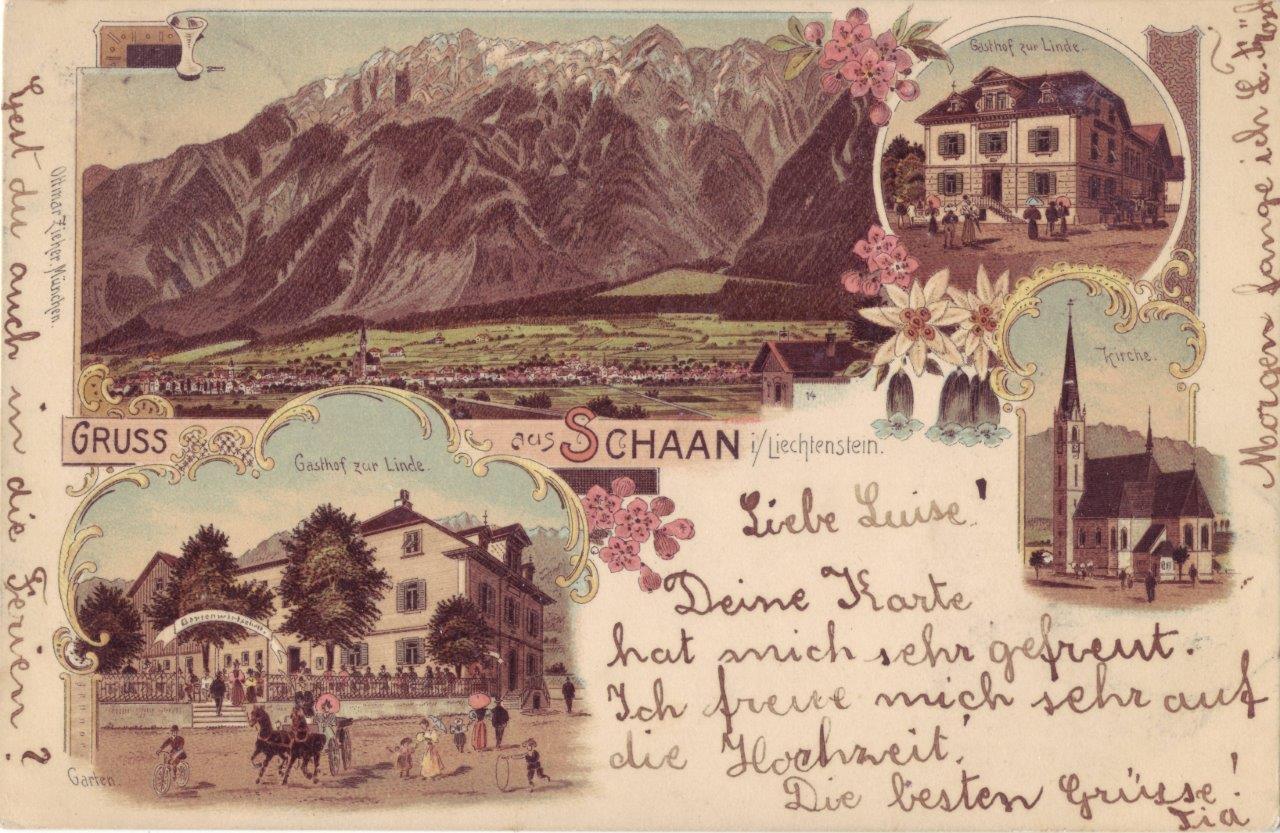 Gasthof zur Linde.
Ottmar Zieher, München.
Kirche.
14
GRUSS aus SCHAAN i/Liechtenstein.
Gasthof zur Linde.
Gartenwirtschaft
Garten.
Liebe Luise!
Deine Karte
hat mich sehr gefreut.
Ich freue mich sehr auf
die Hochzeit!
Die besten Grüsse!
Gest du auch in die Ferien?
Morgen fange ich